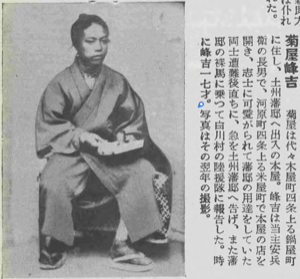 れた。
菊屋峰吉　菊屋は代々木屋町四条上る鍋屋町
に住し、土州藩邸へ出入の本屋。峰吉は当主安兵
衛の長男で、河原町四条上る米屋町で本屋の店を
開き、志士に可愛がられて藩邸の用達をしていた
両士遭難後直ちに、急を土州藩邸へ告げ、また藩
邸の裸馬に乗つて白川村の陸援隊に報告した。時
に峰吉一七才。写真はその翌年の撮影。